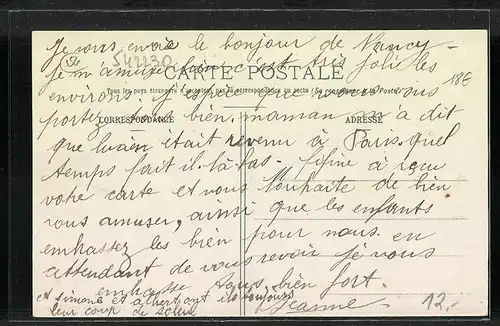 Je vous envoie le bonjour de Nancy -
542230
je m'amuse bien c'est très joli les
CARTE POSTALE
18€
environs. j'espère que vous vous
Tous les pays étrangers n'acceptent pas la correspondance au recto (Se renseigner à la Poste)
portez bien. maman a dit
CORRESPONDANCE
ADRESSE
que était revenu à Paris. quel
temps fait il là-bas. Fifine à reçu
votre carte et vous souhaite de bien
vous amuser, ainsi que les enfants
embrassez les bien pour nous. en
attendant de vous revoir je vous
embrasse tous bien fort.
Jeanne
et Simone et Albert ont ils toujours
leur coup de soleil
12.-